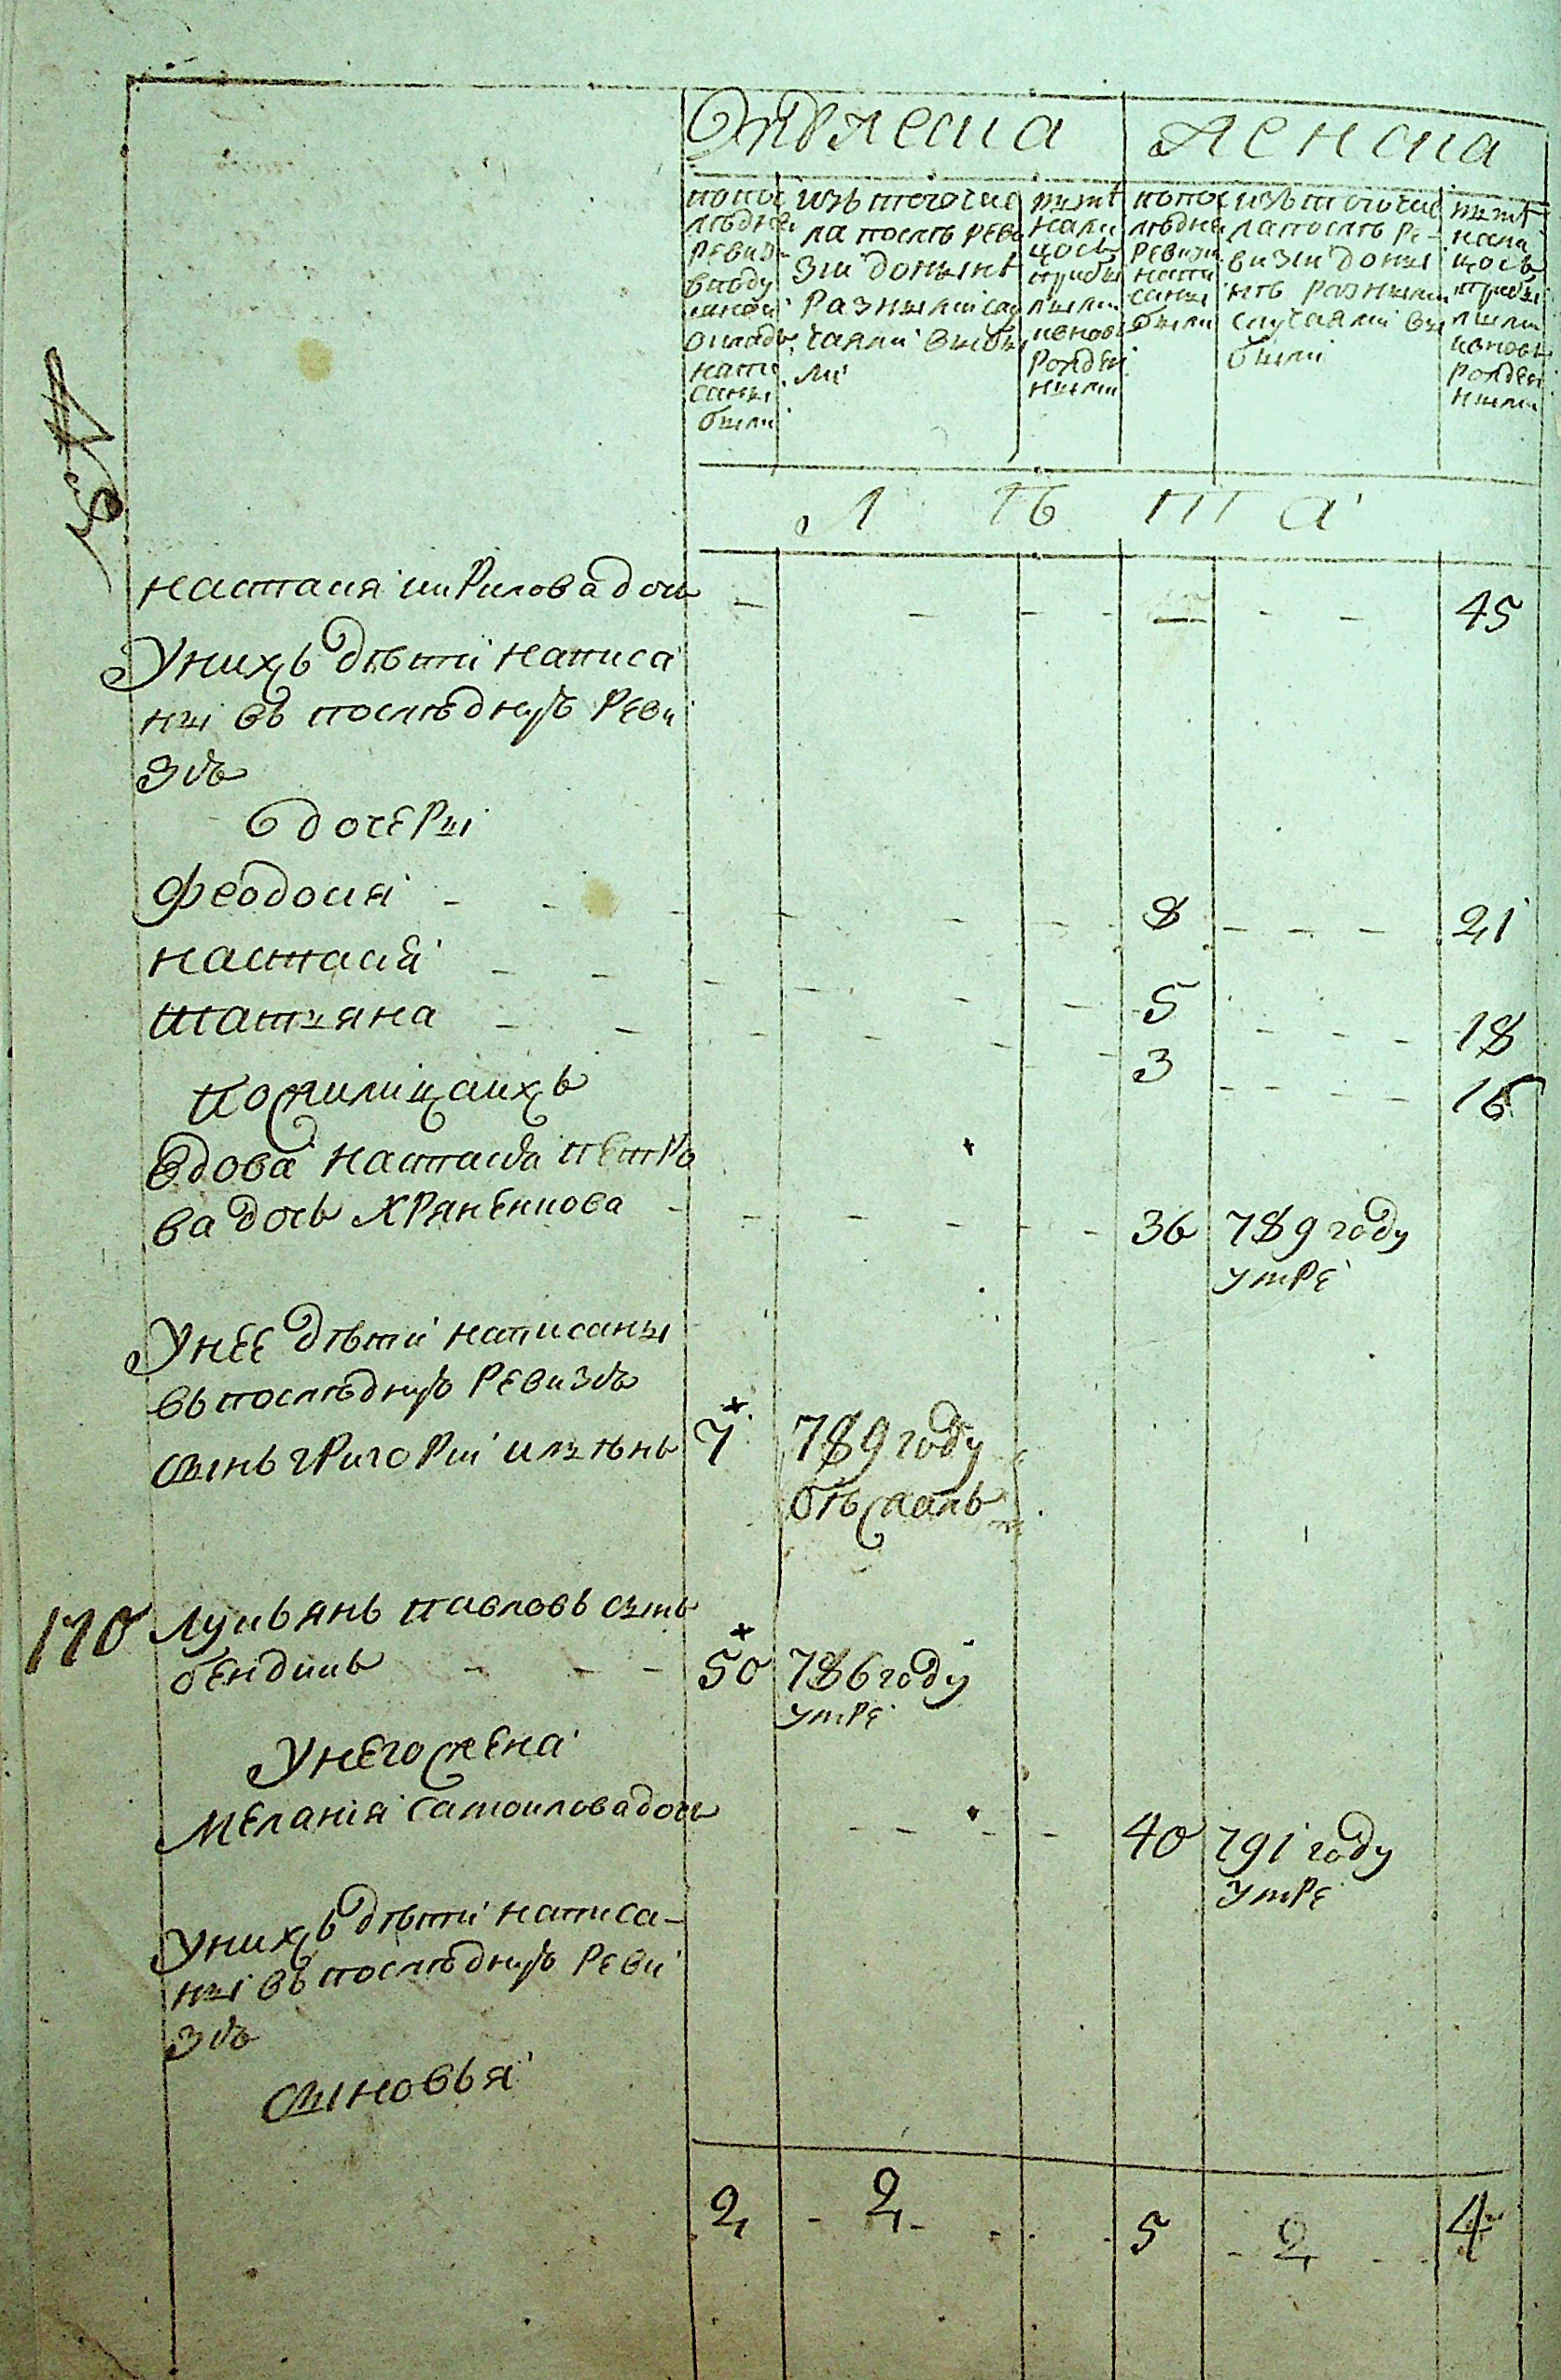 Мужеска
женска
по пос
лѣдней
ревизи
в поду
шной
окладъ
напи
саны
были
изъ того чис
ла послѣ реви
зіи до ныне
разными слу
чаями выбы
ли
ныне
нали
цось
прибы
лыми
и вновь
рожден
ными
по пос
лѣдней
ревизи
напи
саны
были
изъ того чис
ла послѣ ре-
визіи до ны
нѣ разными
случаями вы
были
ныне
нали
цось
прибы
лыми
и вновь
рожден
ными
лѣта
настасія кирилова дочь - - - - - - - 45
У нихъ дѣти написа
ны въ последнуюъ реви
зію
дочери
феодосія - - - - - - 8 - - - 21
настасія - - - - - - 5 - - - 18
татияна - - - - - - 3 - - - 16
По силицаихъ
вдова настасія петро
ва дочь Хряненкова - - - - - - 36 789 году
умре
У неё дѣти написаны
въ последнюю ревизію
сынъ григорий 7 789 году
бѣжалъ
170 Лукьянъ павловъ сынъ
бендикъ - - - 50 786 году
умре
У него жена
меланія самоилова дочь - - - - 40 791 году
умре
У нихъ дѣти написа-
ны въ последнюю реви
зію
сыновья
2 - 2 - - - 5 - 2 - - 4